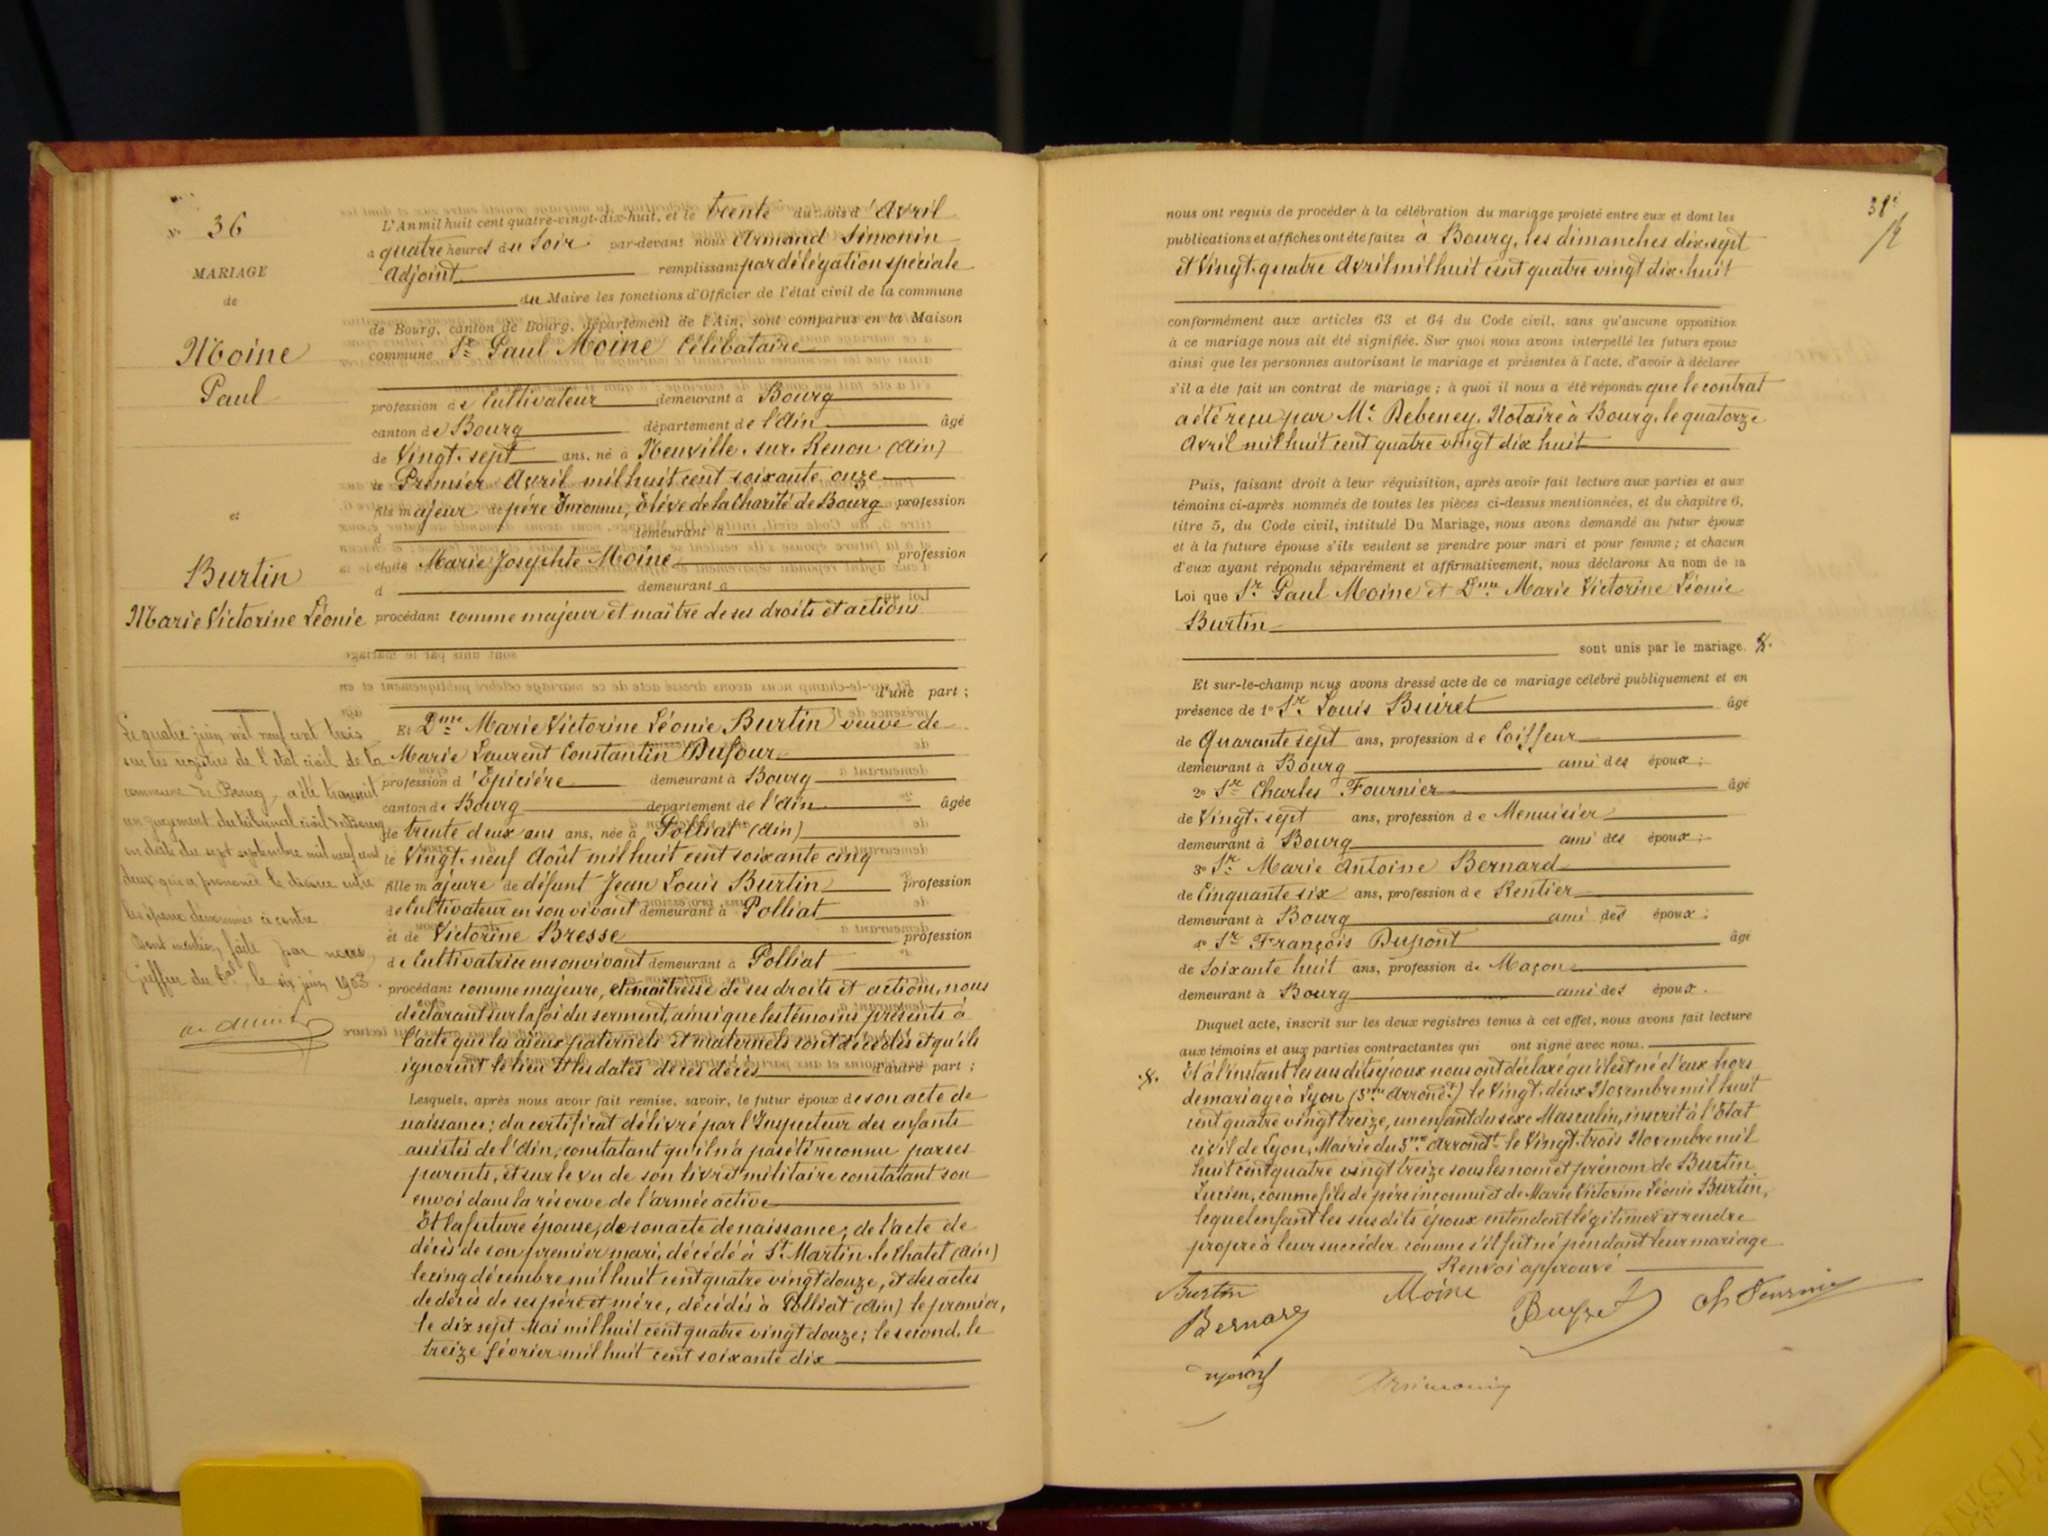 N° 36
MARIAGE
de
Moine
Paul
et
Burtin
Marie Victorine Léonie
Le quatre juin mil neuf cent trois
sur les registres de l'état civil de la
commune de Bourg, a été transcrit
un jugement du tribunal civil de Bourg
en date du sept septembre mil neuf cent
deux qui a prononcé le divorce entre
les époux dénommés ci contre
Dont mention faite par nous,
Greffier du Tal, le six juin 1903.
L'An mil huit cent quatre-vingt-dix-huit, et le trente du mois d'Avril
a quatre heures du Soir par-devant nous Armand Simonin
Adjoint remplissant par délégation spéciale
du Maire les fonctions d'Officier de l'état civil de la commune
de Bourg, canton de Bourg, département de l'Ain, sont comparus en la Maison
commune Sr Paul Moine Célibataire
profession de Cultivateur demeurant à Bourg
canton de Bourg département de l'Ain âgé
de Vingt-sept ans, né à Neuville-sur-Renon (Ain)
le Premier Avril mil huit cent soixante onze
fils majeur de père Inconnu, Elève de la Charité de Bourg profession
d demeurant à
et de Marie Josephte Moine profession
d demeurant à
procédant comme majeur et maître de ses droits et actions
d'une part ;
Et Dme Marie Victorine Léonie Burtin veuve de
Marie Laurent Constantin Dufour
profession d'Epicière demeurant à Bourg
canton de Bourg département de l'Ain âgée
de trente deux ans ans, née à Polliat (Ain)
le Vingt-neuf Août mil huit cent soixante cinq
fille majeure de défunt Jean Louis Burtin profession
de Cultivateur en son vivant demeurant à Polliat
et de Victorine Bresse profession
de Cultivatrice en son vivant demeurant à Polliat
procédant comme majeure, et maîtresse de ses droits et actions, nous
déclarant sur la foi du serment, ainsi que les témoins présents à
l'acte que les aïeux paternels et maternels sont décédés et qu'ils
ignorent le lieu et les dates de ces décès d'autre part ;
Lesquels, après nous avoir fait remise, savoir, le futur époux de son acte de
naissance ; du certificat délivré par l'Inspecteur des enfants
assistés de l'Ain, constatant qu'il n'a pas été reconnu par ses
parents, et sur le vu de son livret militaire constatant son
envoi dans la réserve de l'armée active
Et la future épouse, de son acte de naissance, de l'acte de
décès de son premier mari, décédé à St Martin-le-Chatel (Ain)
le cinq décembre mil huit cent quatre vingt douze, et des actes
de décès de ses père et mère, décédés à Polliat (Ain) le premier,
le dix sept Mai mil huit cent quatre vingt douze ; le second, le
treize février mil huit cent soixante dix
nous ont requis de procéder à la célébration du mariage projeté entre eux et dont les
publications et affiches ont été faites à Bourg, les dimanches dix-sept
et Vingt-quatre Avril mil huit cent quatre vingt dix-huit
conformément aux articles 63 et 64 du Code civil, sans qu'aucune opposition
à ce mariage nous ait été signifiée. Sur quoi nous avons interpellé les futurs epoux
ainsi que les personnes autorisant le mariage et présentes à l'acte, d'avoir à déclarer
s'il a été fait un contrat de mariage ; à quoi il nous a été répondu que le contrat
a été reçu par Me Debeney, Notaire à Bourg, le quatorze
Avril mil huit cent quatre vingt dix huit
Puis, faisant droit à leur réquisition, après avoir fait lecture aux parties et aux
témoins ci-après nommés de toutes les pièces ci-dessus mentionnées, et du chapitre 6,
titre 5, du Code civil, intitulé Du Mariage, nous avons demandé au futur époux
et à la future épouse s'ils veulent se prendre pour mari et pour femme ; et chacun
d'eux ayant répondu séparément et affirmativement, nous déclarons Au nom de la
Loi que Sr Paul Moine et Dme Marie Victorine Léonie
Burtin
sont unis par le mariage.
Et sur-le-champ nous avons dressé acte de ce mariage célébré publiquement et en
présence de 1° Sr Louis Buiret âgé
de Quarante sept ans, profession de Coiffeur
demeurant à Bourg ami des époux ;
2° Sr Charles Fournier âgé
de Vingt-sept ans, profession de Menuisier
demeurant à Bourg ami des époux ;
3° Sr Marie Antoine Bernard
de Cinquante six ans, profession de Rentier
demeurant à Bourg ami des époux ;
4° Sr François Dupont âgé
de Soixante huit ans, profession de Maçon
demeurant à Bourg ami des époux.
Duquel acte, inscrit sur les deux registres tenus à cet effet, nous avons fait lecture
aux témoins et aux parties contractantes qui ont signé avec nous.
Et à l'instant les susdits époux nous ont déclaré qu'il est né d'eux hors
de mariage à Lyon (5me Arrondt) le Vingt-deux Novembre mil huit
cent quatre vingt treize, un enfant du sexe Masculin, inscrit à l'Etat
civil de Lyon, Mairie du 5me Arrondt le Vingt-trois Novembre mil
huit cent quatre vingt treize sous les nom et prénom de Burtin
Lucien, comme fils de père inconnu et de Marie Victorine Léonie Burtin,
lequel enfant les susdits époux entendent légitimer et rendre
propre à leur succéder comme s'il fut né pendant leur mariage
Renvoi approuvé
Burtin Moine Buyret Ch Fournier
Bernard